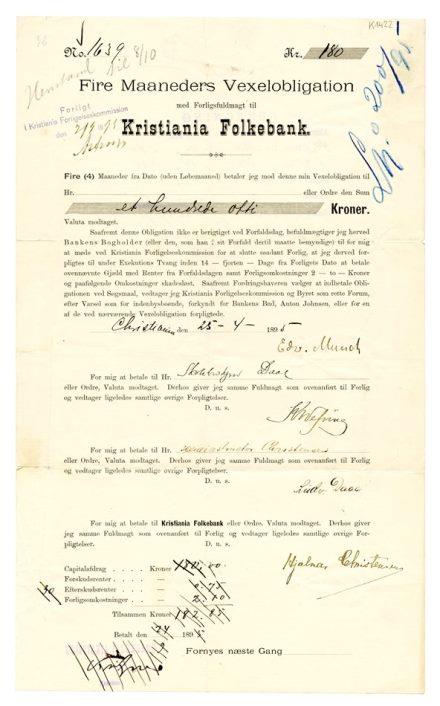 K1422
No. 1639 Kr. 180
Henstand til 8/10
Fire Maaneders Vexelobligation
med Forligsfuldmagt til
Kristiania Folkebank.
Forligt
i Kristiania Forligelseskommission
den 2/9 1895
Fire (4) Maaneder fra Dato (uden Løbemaaned) betaler jeg mod denne min Vexelobligation til
Hr. eller Ordre den Sum
et hundrede otti Kroner.
Valuta modtaget.
Saafremt denne Obligation ikke er berigtiget ved Forfaldsdag, befuldmægtiger jeg herved
Bankens Bogholder (eller den, som han i sit Forfald dertil maatte bemyndige) til for mig
at møde ved Kristiania Forligelseskommission for at slutte saadant Forlig, at jeg derved for-
pligtes til under Exekutions Tvang inden 14 — fjorten — Dage fra Forligets Dato at betale
ovennævnte Gjæld med Renter fra Forfaldsdagen samt Forligsomkostninger 2 — to — Kroner
og paafølgende Omkostninger skadesløst. Saafremt Fordringshaveren vælger at indbetale Obli-
gationen ved Søgsmaal, vedtager jeg Kristiania Forligelseskommission og Byret som rette Forum,
efter Varsel som for indenbysboende, forkyndt for Bankens Bud, Anton Johnsen, eller for en
af de ved nærværende Vexelobligation forpligtede.
Christiania den 25 - 4 - 1895
Edv. Munch
For mig at betale til Hr. Daae
eller Ordre, Valuta modtaget. Derhos giver jeg samme Fuldmagt som ovenanført til Forlig
og vedtager ligeledes samtlige øvrige Forpligtelser.
D. u. s.
For mig at betale til Hr. Christensen
eller Ordre, Valuta modtaget. Derhos giver jeg samme Fuldmagt som ovenanført til Forlig
og vedtager ligeledes samtlige øvrige Forpligtelser.
D. u. s.
Ludv. Daae
For mig at betale til Kristiania Folkebank eller Ordre. Valuta modtaget. Derhos giver
jeg samme Fuldmagt som ovenanført til Forlig og vedtager ligeledes samtlige øvrige For-
pligtelser. D. u. s.
Hjalmar Christensen
Capitalafdrag . . . . Kroner 180.00.
Forskudsrenter . . . —
Efterskudsrenter . . —
Forligsomkostninger . . —
Tilsammen Kroner
Betalt den 1895
Fornyes næste Gang